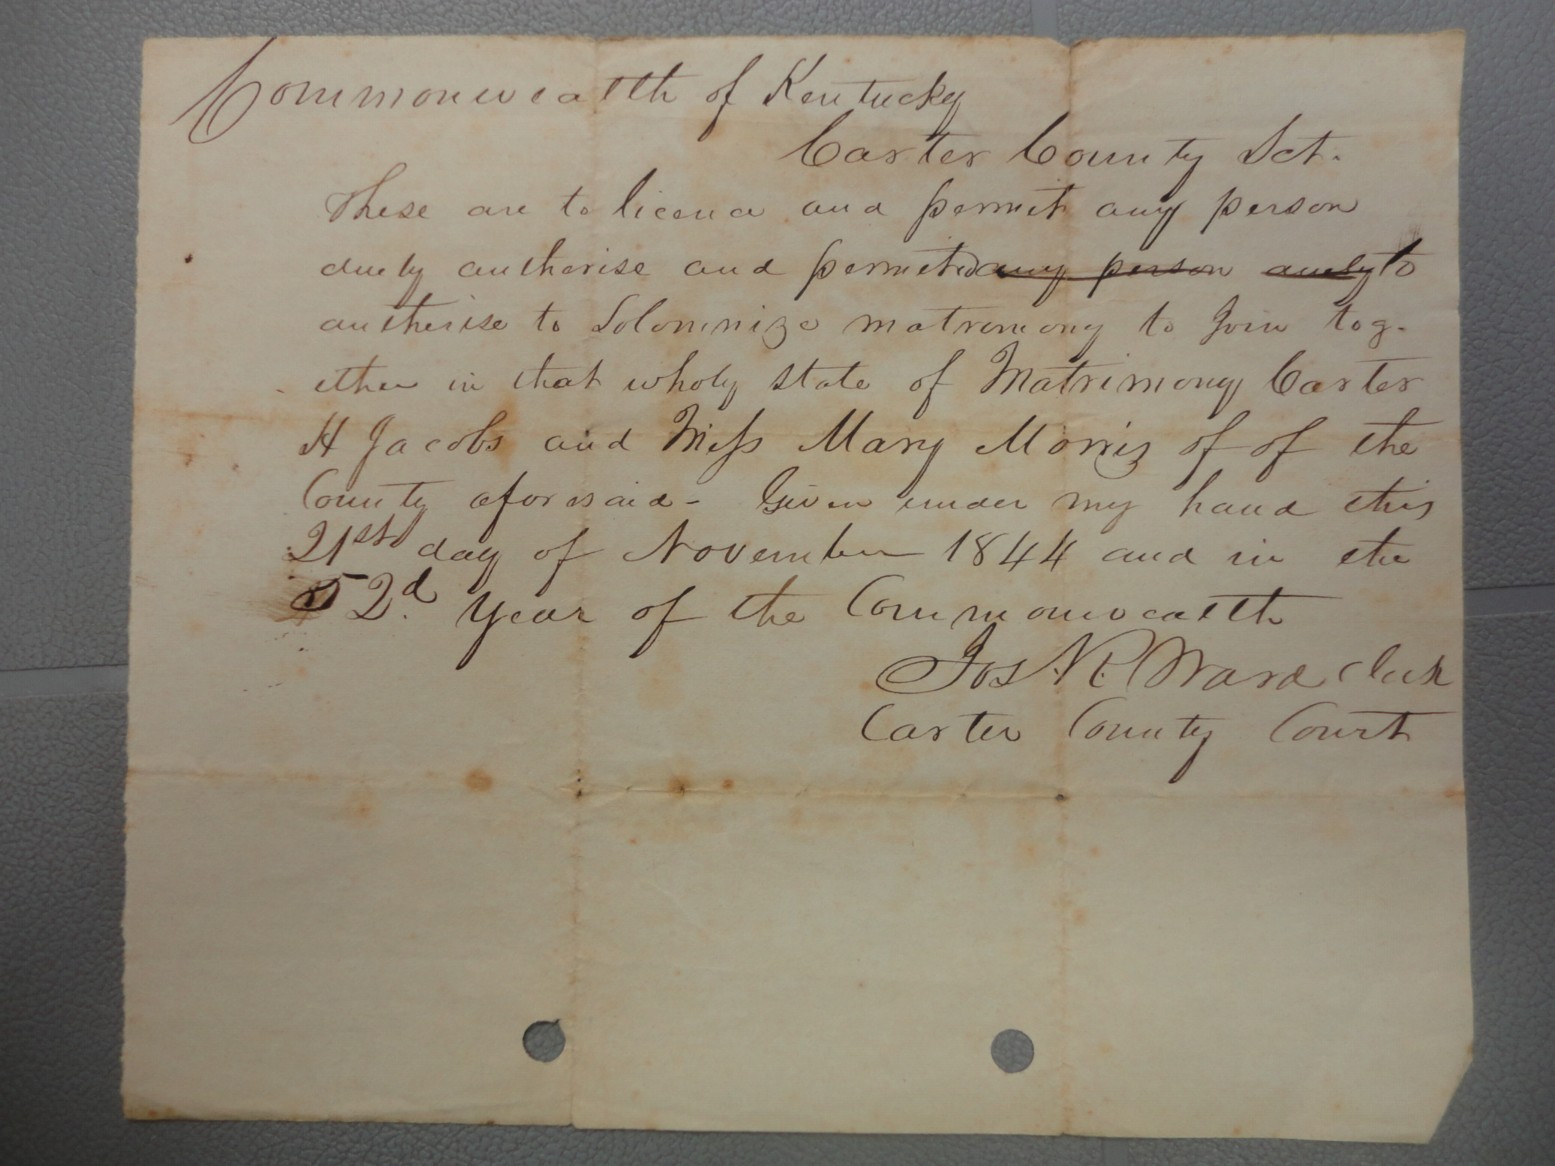 Commonwealth of Kentucky
Carter County Sct.
These are to licence and permit any person
duely autherise and permited any person duely to
autherise to Solomnize matremony to Join tog-
ether in that wholy state of Matrimony Carter
H Jacobs and Miss Mary Morris of of the
County aforesaid - Given under my hand this
21st day of November 1844 and in the
52d. year of the Commonwealth
Jos N R Ward Clerk
Carter County Court